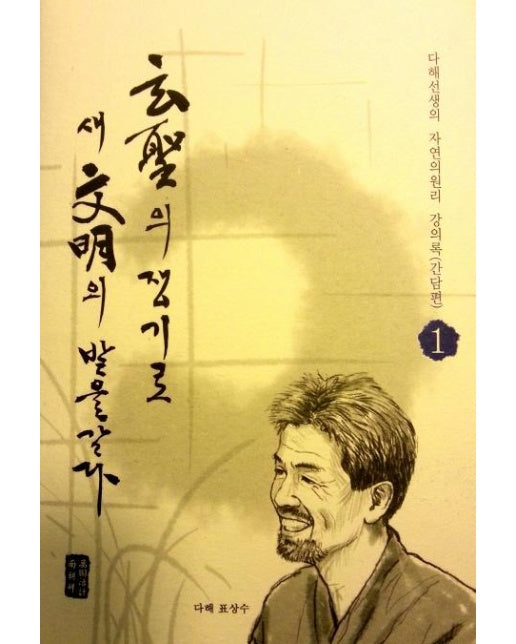 玄聖의 쟁기로
새 文明의 밭을 갈다
다해선생의 자연의원리 강의록(간담편)
1
다해 표상수